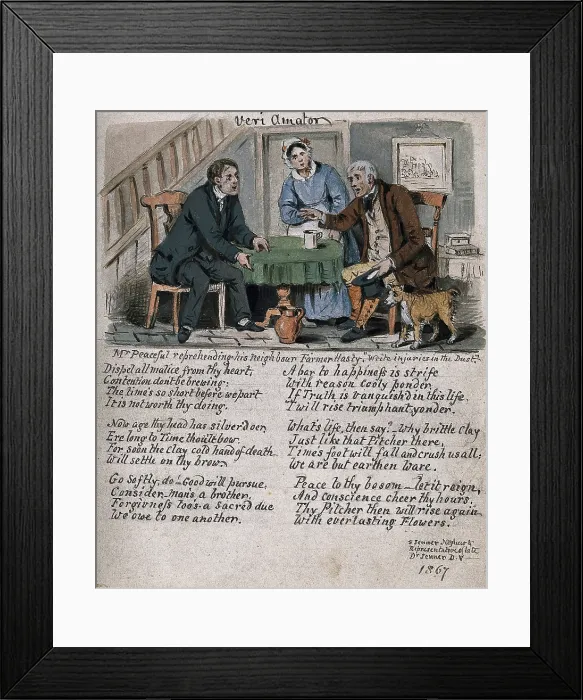 Veri Amator
Mr Peaceful reprehending his neighbour Farmer Hasty, "Write injuries in the Dust."
Dispel all malice from thy heart,
Contention dont be brewing:
The time's so short before we part
It is not worth thy doing.
Now age thy head has silver'd oer,
Ere long to Time thou'lt bow.
For soon the Clay cold hand of death
Will settle on thy brow.
Go Softly, do - Good will pursue,
Consider - man's a brother,
Forgivneſs too's a sacred due
We owe to one another.
A bar to happineſs is strife
With reason cooly ponder,
If Truth is vanquish'd in this life
T'will rise triumphant yonder.
What's life, then say? - Why brittle Clay
Just like that Pitcher there,
Time's foot will fall and crush us all;
We are but earthen ware.
Peace to thy bosom - let it reign,
And conscience cheer thy hours.
Thy Pitcher then will rise again
With everlasting Flowers.
S Jenner Nephew &
Representative of late
Dr Jenner D.
1867